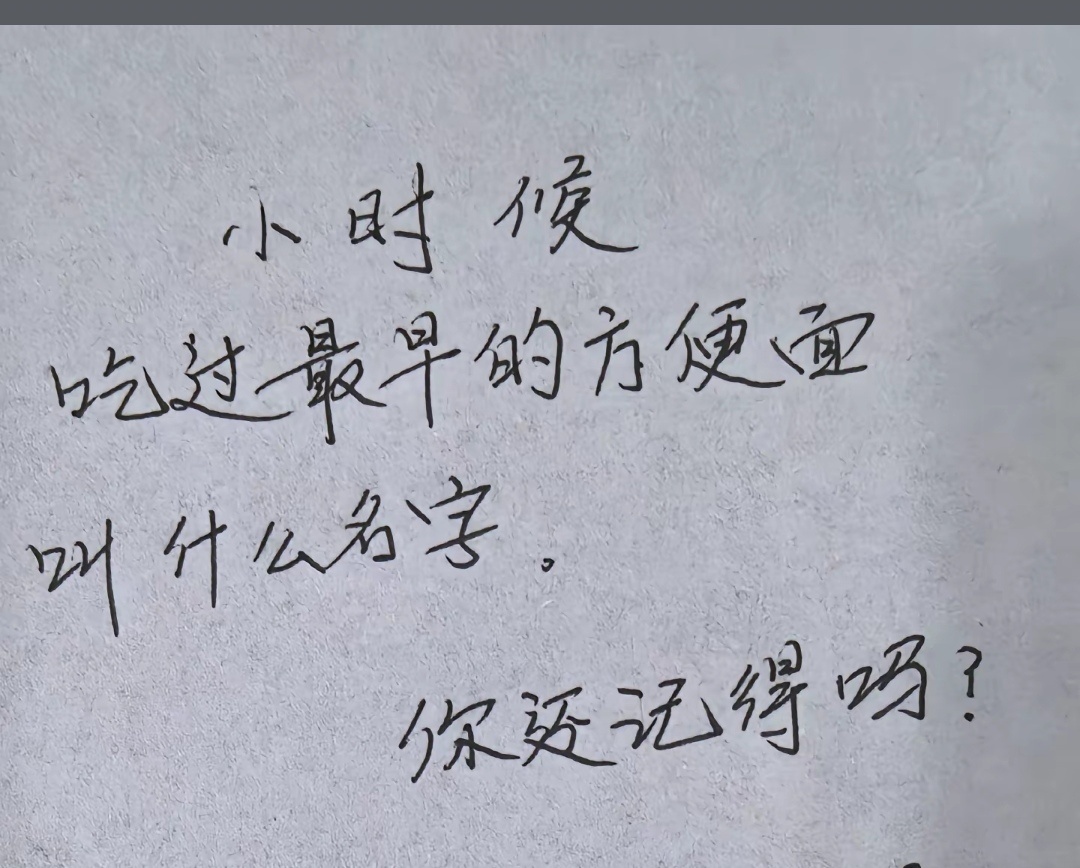 小时候
吃过最早的方便面
叫什么名字。
你还记得吗?